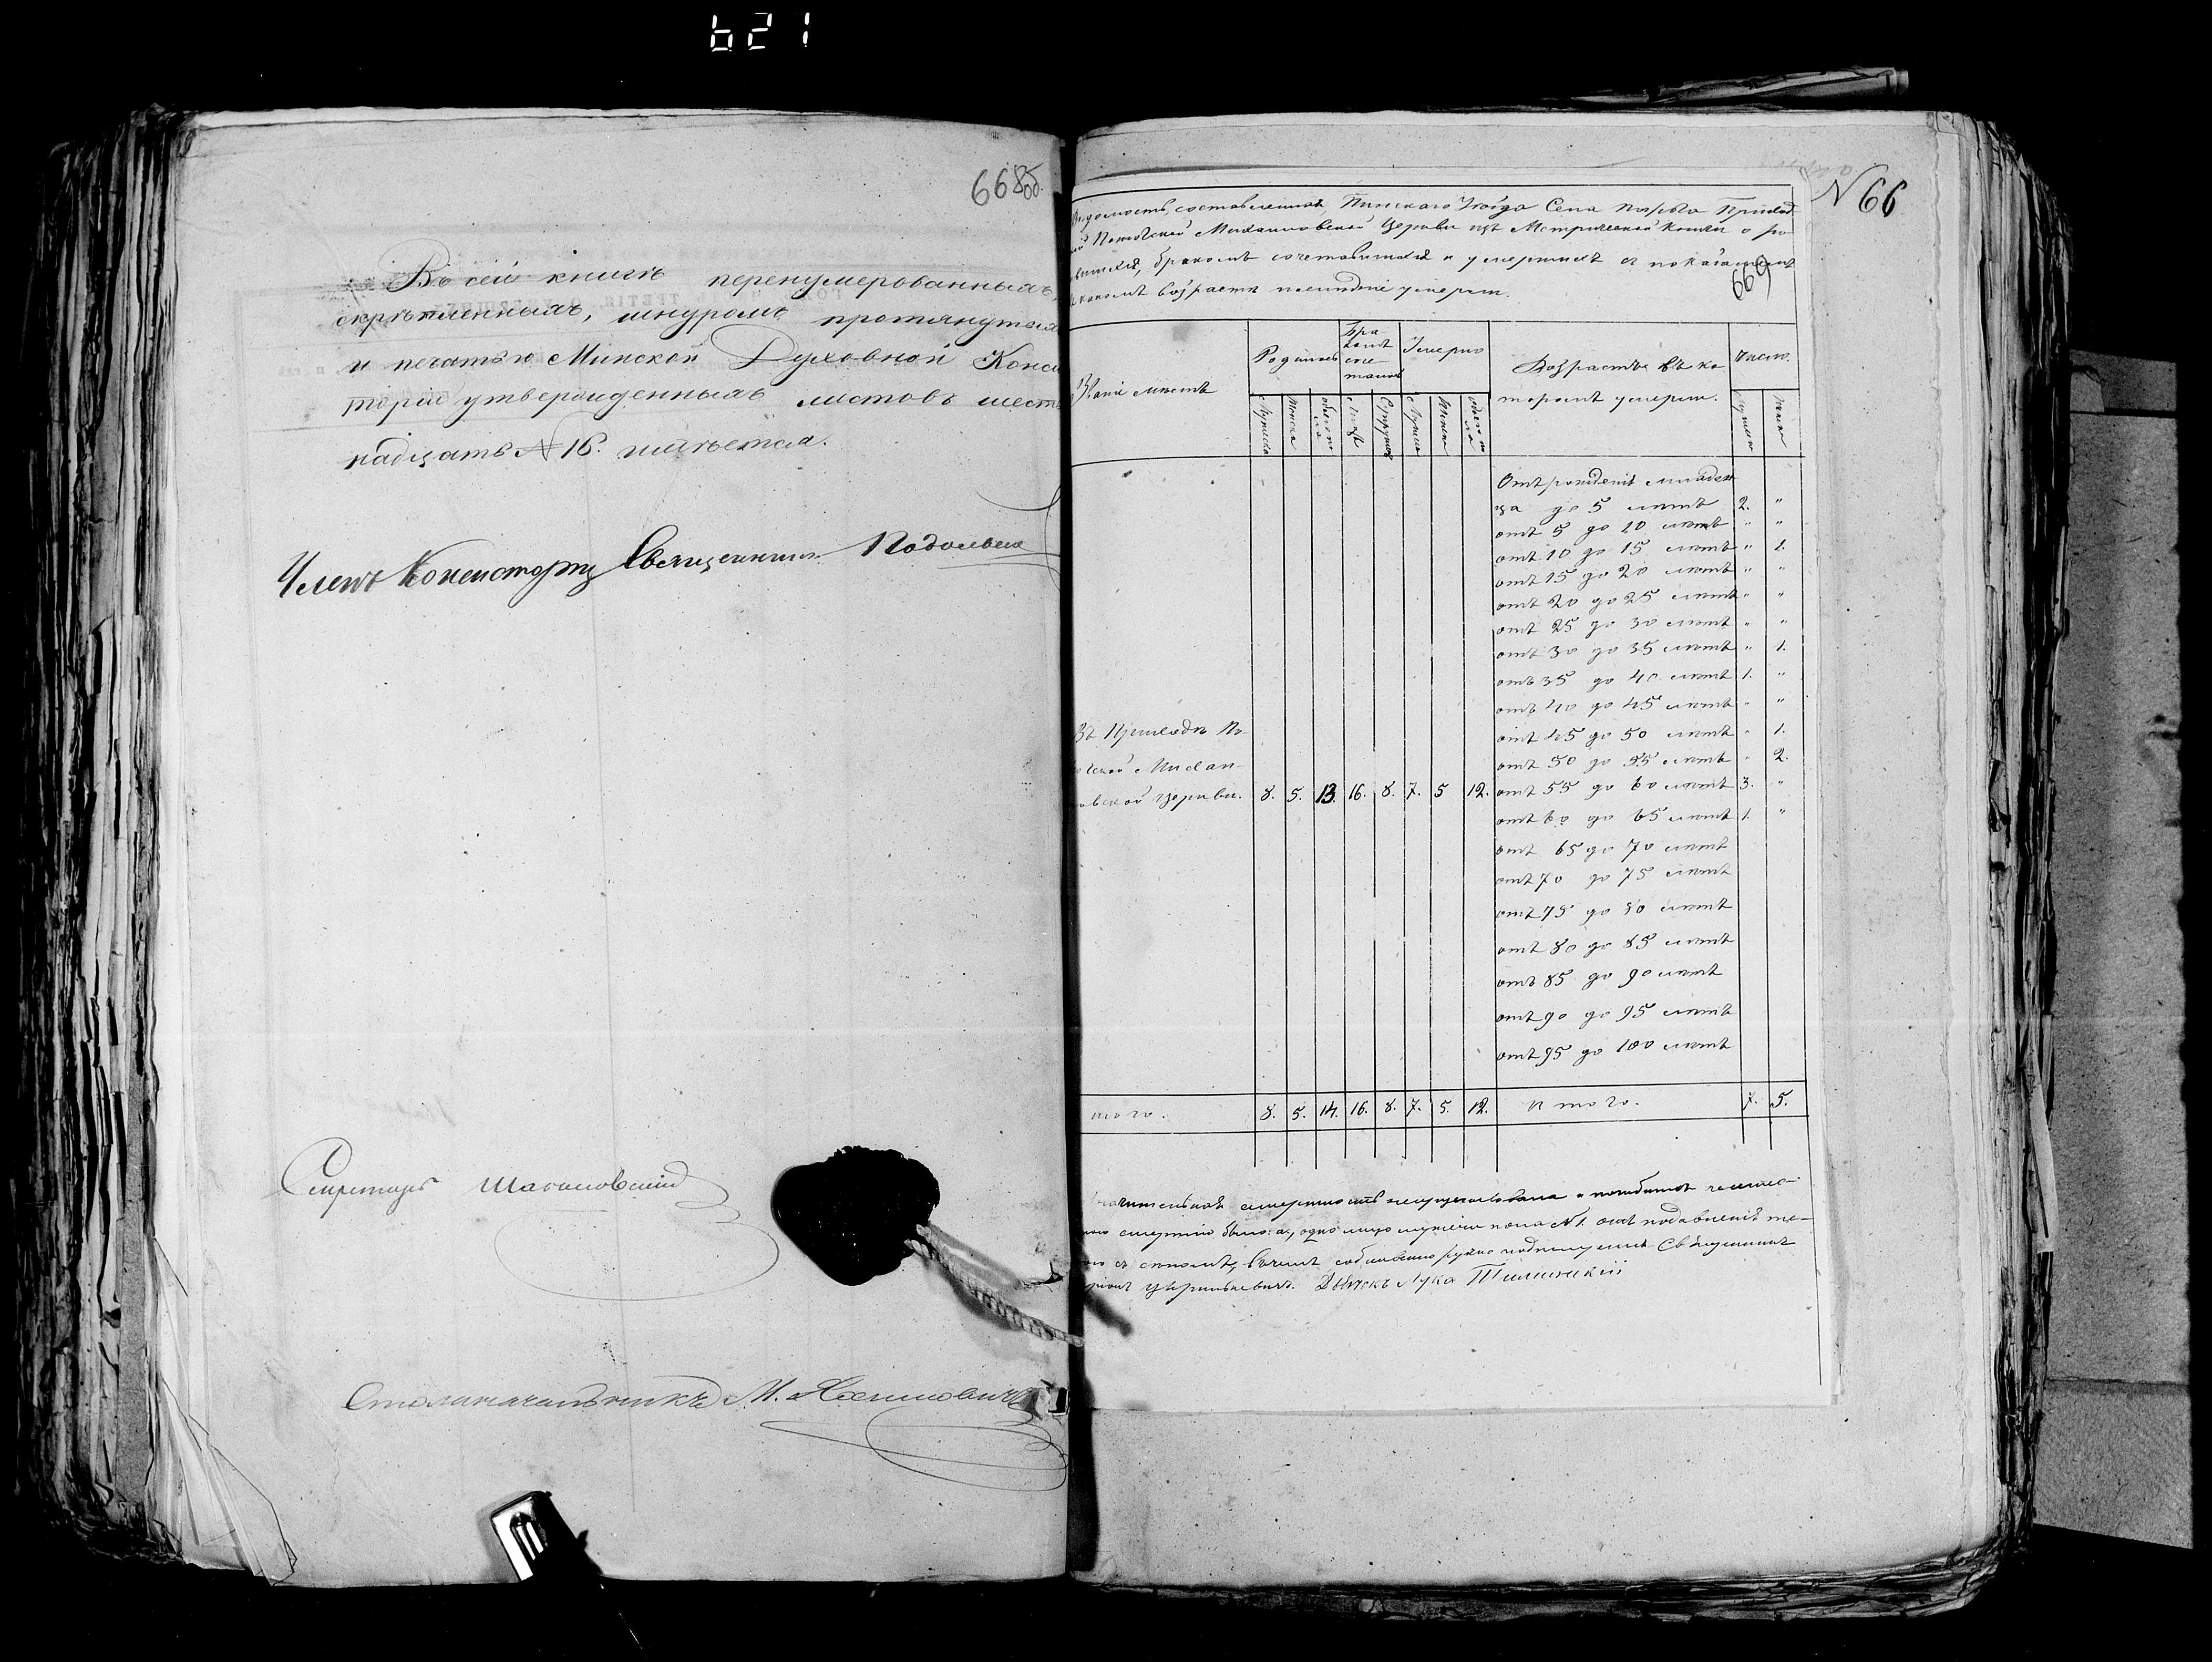 621
668 об.
Въ сей книгѣ перенумерованныхъ,
скрѣпленныхъ, шнуромъ протянутыхъ
и печатью Минской Духовной Конси
торіи утвержденныхъ листовъ шест
надцать № 16. имѣется.
Членъ Консисторіи Священникъ
Секретарь
Столоначальникъ М.
№ 66
Вѣдомость, составленная Пинскаго Уѣзда Села Приход
Михайловской Церкви изъ Метрической Книги о ро
бракомъ сочетавшихся и умершихъ съ показаніемъ
возрастѣ умерли.
669
Званіе мѣстъ
Родилось
Бра
комъ
соче
талось
Умерло
Возрастъ въ ко
торомъ умерли.
Число.
Мужеска
Женска
обоего по
ла
Лицъ
Супруж
Мужеска
Женска
обоего по
ла
Мужеска
Женска
Отъ рожденія младен
ца до 5 лѣтъ 2. "
отъ 5 до 10 лѣтъ " "
отъ 10 до 15 лѣтъ " 1.
отъ 15 до 20 лѣтъ " "
отъ 20 до 25 лѣтъ " "
отъ 25 до 30 лѣтъ " "
отъ 30 до 35 лѣтъ " 1.
отъ 35 до 40 лѣтъ 1. "
отъ 40 до 45 лѣтъ " "
отъ 45 до 50 лѣтъ " 1.
отъ 50 до 55 лѣтъ " 2.
отъ 55 до 60 лѣтъ 3. "
отъ 60 до 65 лѣтъ 1. "
отъ 65 до 70 лѣтъ
отъ 70 до 75 лѣтъ
отъ 75 до 80 лѣтъ
отъ 80 до 85 лѣтъ
отъ 85 до 90 лѣтъ
отъ 90 до 95 лѣтъ
отъ 95 до 100 лѣтъ
Въ Приходѣ По
Михай
овской Церкви. 8. 5. 13. 16. 8. 7. 5 12.
того. 8. 5. 14. 16. 8. 7. 5. 12. Итого. 7. 5.
смертію было: а, одно лицо мужеска пола № 1. отъ
въ чемъ собственноручно подписуемся Священникъ
Дьячекъ Лука